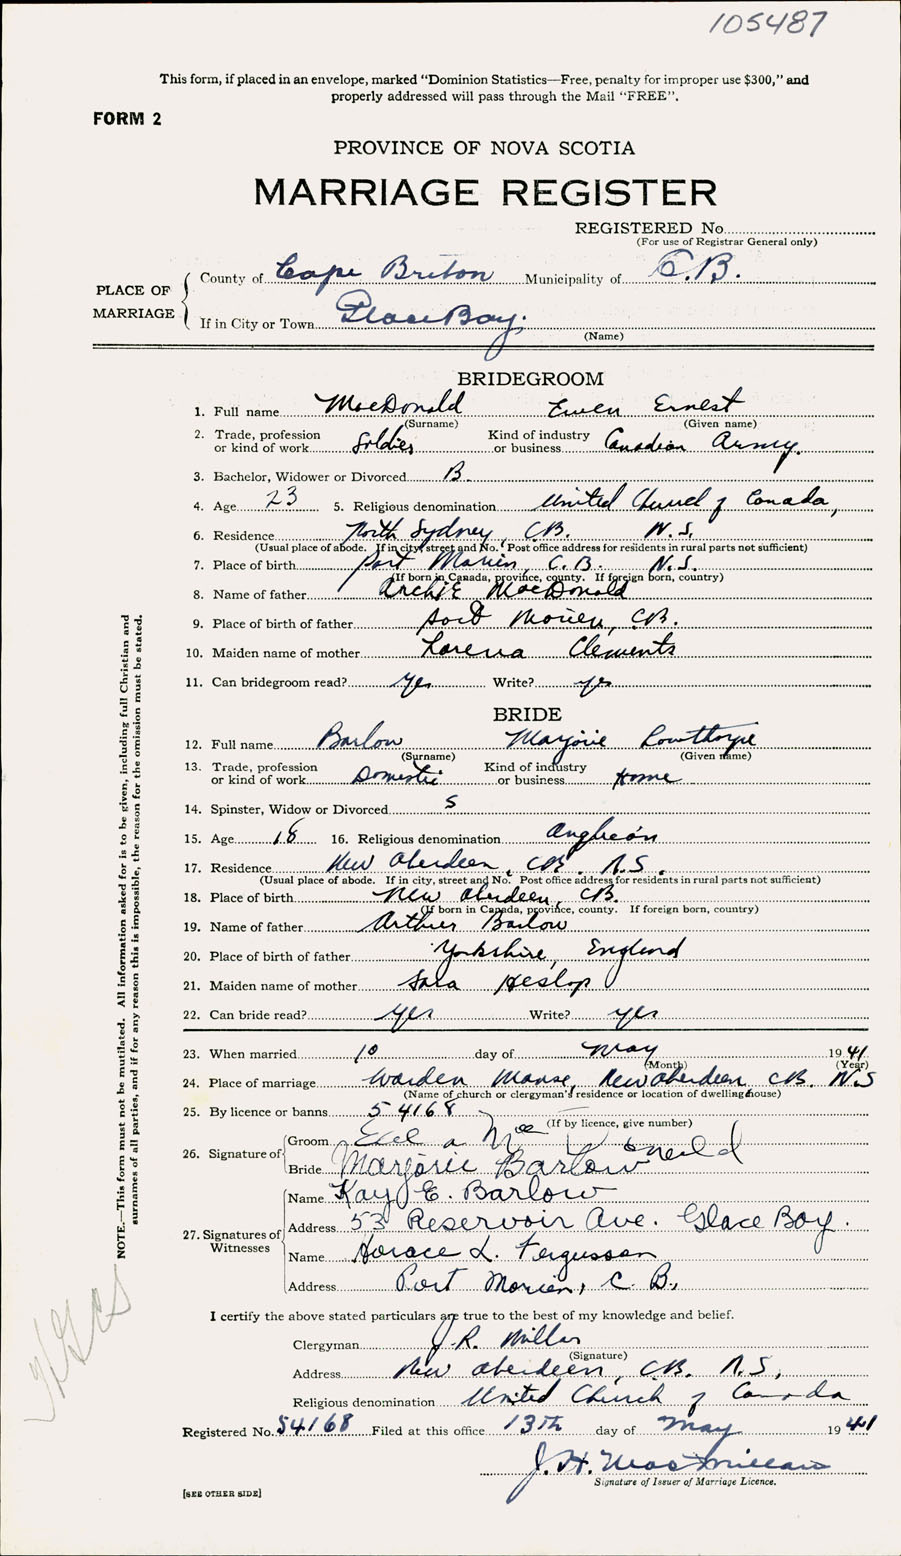 105487
This form, if placed in an envelope, marked "Dominion Statistics—Free, penalty for improper use $300," and
properly addressed will pass through the Mail "FREE".
FORM 2
PROVINCE OF NOVA SCOTIA
MARRIAGE REGISTER
REGISTERED No.
(For use of Registrar General only)
PLACE OF MARRIAGE
County of Cape Briton Municipality of C.B.
If in City or Town Glace Bay.
(Name)
BRIDEGROOM
1. Full name MacDonald Ewen Ernest
(Surname) (Given name)
2. Trade, profession or kind of work Soldier Kind of industry or business Canadian Army.
3. Bachelor, Widower or Divorced B.
4. Age 23 5. Religious denomination United Church of Canada,
6. Residence North Sydney, C.B. N.S.
(Usual place of abode. If in city, street and No. Post office address for residents in rural parts not sufficient)
7. Place of birth Port Morien, C.B. N.S.
(If born in Canada, province, county. If foreign born, country)
8. Name of father Archie MacDonald
9. Place of birth of father Port Morien, C.B.
10. Maiden name of mother Lorena Clements
11. Can bridegroom read? yes Write? yes
BRIDE
12. Full name Barlow Marjorie Lowthorpe
(Surname) (Given name)
13. Trade, profession or kind of work Domestic Kind of industry or business Home
14. Spinster, Widow or Divorced S
15. Age 18 16. Religious denomination Anglican
17. Residence New Aberdeen, C.B. N.S.
(Usual place of abode. If in city, street and No. Post office address for residents in rural parts not sufficient)
18. Place of birth New Aberdeen, C.B.
(If born in Canada, province, county. If foreign born, country)
19. Name of father Arthur Barlow
20. Place of birth of father Yorkshire, England
21. Maiden name of mother Sara Heslop
22. Can bride read? yes Write? yes
23. When married 10 day of May 1941
(Month) (Year)
24. Place of marriage Warden Manse, New Aberdeen C.B. N.S
(Name of church or clergyman's residence or location of dwelling house)
25. By licence or banns 54168
(If by licence, give number)
26. Signature of
Groom
Bride Marjorie Barlow
27. Signatures of Witnesses
Name Kay E. Barlow
Address 53 Reservoir Ave. Glace Bay.
Name Horace L. Fergusson
Address Port Morien, C. B.,
I certify the above stated particulars are true to the best of my knowledge and belief.
Clergyman J. R. Millar
(Signature)
Address New Aberdeen, C.B. N.S,
Religious denomination United Church of Canada
Registered No. 54168 Filed at this office 13th day of May 1941
J. H. MacMillan
Signature of Issuer of Marriage Licence.
[SEE OTHER SIDE]
NOTE.—This form must not be mutilated. All information asked for is to be given, including full Christian and
surnames of all parties, and if for any reason this is impossible, the reason for the omission must be stated.